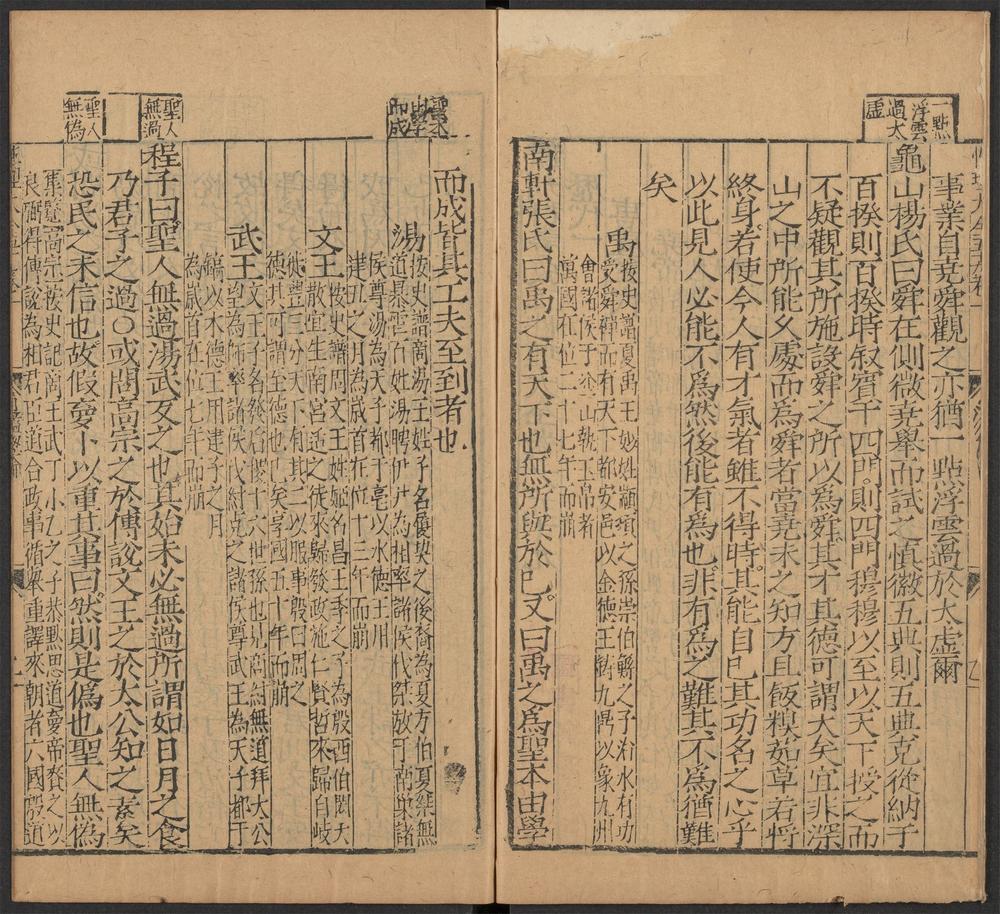 一點
浮雲
過太
虛
事業自堯舜觀之亦猶一點浮雲過於太虛爾
龜山楊氏曰舜在側微堯舉而試之慎徽五典則五典克從納于
百揆則百揆時叙賓于四門則四門穆穆以至以天下授之而
不疑觀其所施設舜之所以為舜其才其德可謂大矣宜非深
山之中所能久處而為舜者當堯未之知方且飯糗茹草若將
終身若使今人有才氣者雖不得時其能自已其功名之心乎
以此見人必能不為然後能有為也非有為之難其不為猶難
矣
禹
按史譜夏禹王姒姓顓頊之孫崇伯鯀之子治水有功
受舜禪而有天下都安邑以金德王鑄九鼎以象九州
會諸侯于塗山執玉帛者
萬國在位二十七年而崩
南軒張氏曰禹之有天下也無所與於己又曰禹之為聖本由學
聖本
由學
而成
而成皆其工夫至到者也
湯
按史譜商湯王姓子名履契之後裔為夏方伯夏桀無
道暴虐百姓湯聘伊尹為相率諸侯伐桀放于南巢諸
侯尊湯為天子都于亳以水德王用
建丑之月為歲首在位十三年而崩
文王
按史譜周文王姓姬名昌王季之子為殷西伯閎夭
散宜生南宮适之徒來歸發政施仁賢哲來歸自岐
徙豐三分天下有其二以服事殷曰周之
德其可謂至德也已矣享國五十年而崩
武王
文王子名發后稷十六世孫也見商紂無道拜太公
望為師率諸侯伐紂克之諸侯尊武王為天子都于
鎬以木德王用建子之月
為歲首在位七年而崩
聖人
無過
程子曰聖人無過湯武反之也其始未必無過所謂如日月之食
乃君子之過○或問高宗之於傅說文王之於太公知之素矣
聖人
無偽
恐民之未信也故假夢卜以重其事曰然則是偽也聖人無偽
集覽高宗按史記商王武丁小乙之子恭默思道夢帝賚之以
良弼得傅說為相君臣道合政事循舉重譯來朝者六國殷道